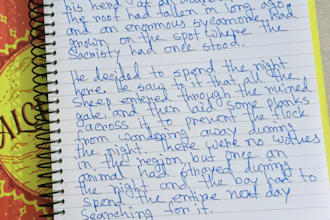 his herd at an
the roof had fallen in long ago,
and an enormous sycamore had
grown on the spot where the
sacristy had once stood.
He decided to spend the night
here. He saw to it that all the
sheep entered through the ruined
gate, and then laid some planks
across it to prevent the flock
from wandering away during
the night. There were no wolves
in the region, but once an
animal had strayed during
the night and the boy had to
spend the entire next day
searching for it.
ALC